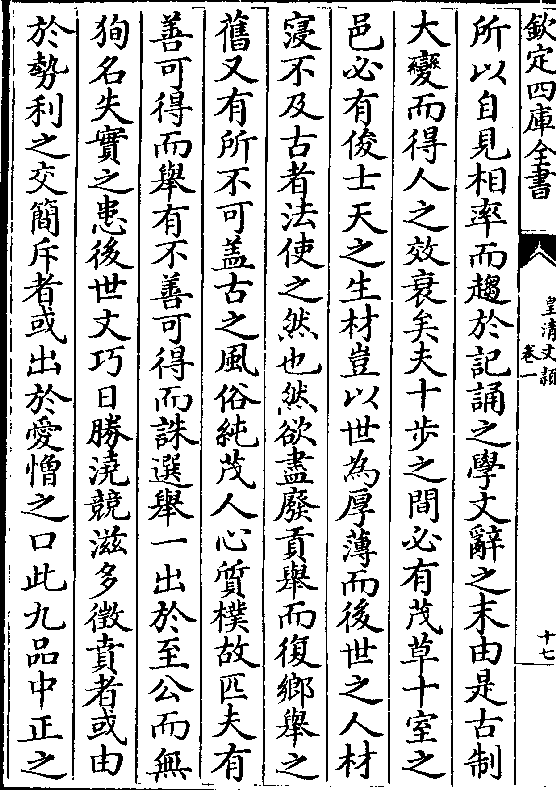 欽定四庫全書
皇清文穎
卷一
十七
所以自見相率而趨於記誦之學文辭之末由是古制
大變而得人之效衰矣夫十步之間必有茂草十室之
邑必有俊士天之生材豈以世為厚薄而後世之人材
寖不及古者法使之然也然欲盡廢貢舉而復鄉舉之
舊又有所不可盖古之風俗純茂人心質樸故匹夫有
善可得而舉有不善可得而誅選舉一出於至公而無
狥名失實之患後世文巧日勝澆競滋多徵責者或由
於勢利之交簡斥者或出於愛憎之口此九品中正之